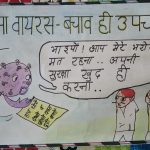 ना वायरस- बचाव ही उपच
भाइयों! आप मेरे भरोसे
मत रहना.. अपनी
सुरक्षा खुद ही
करना..